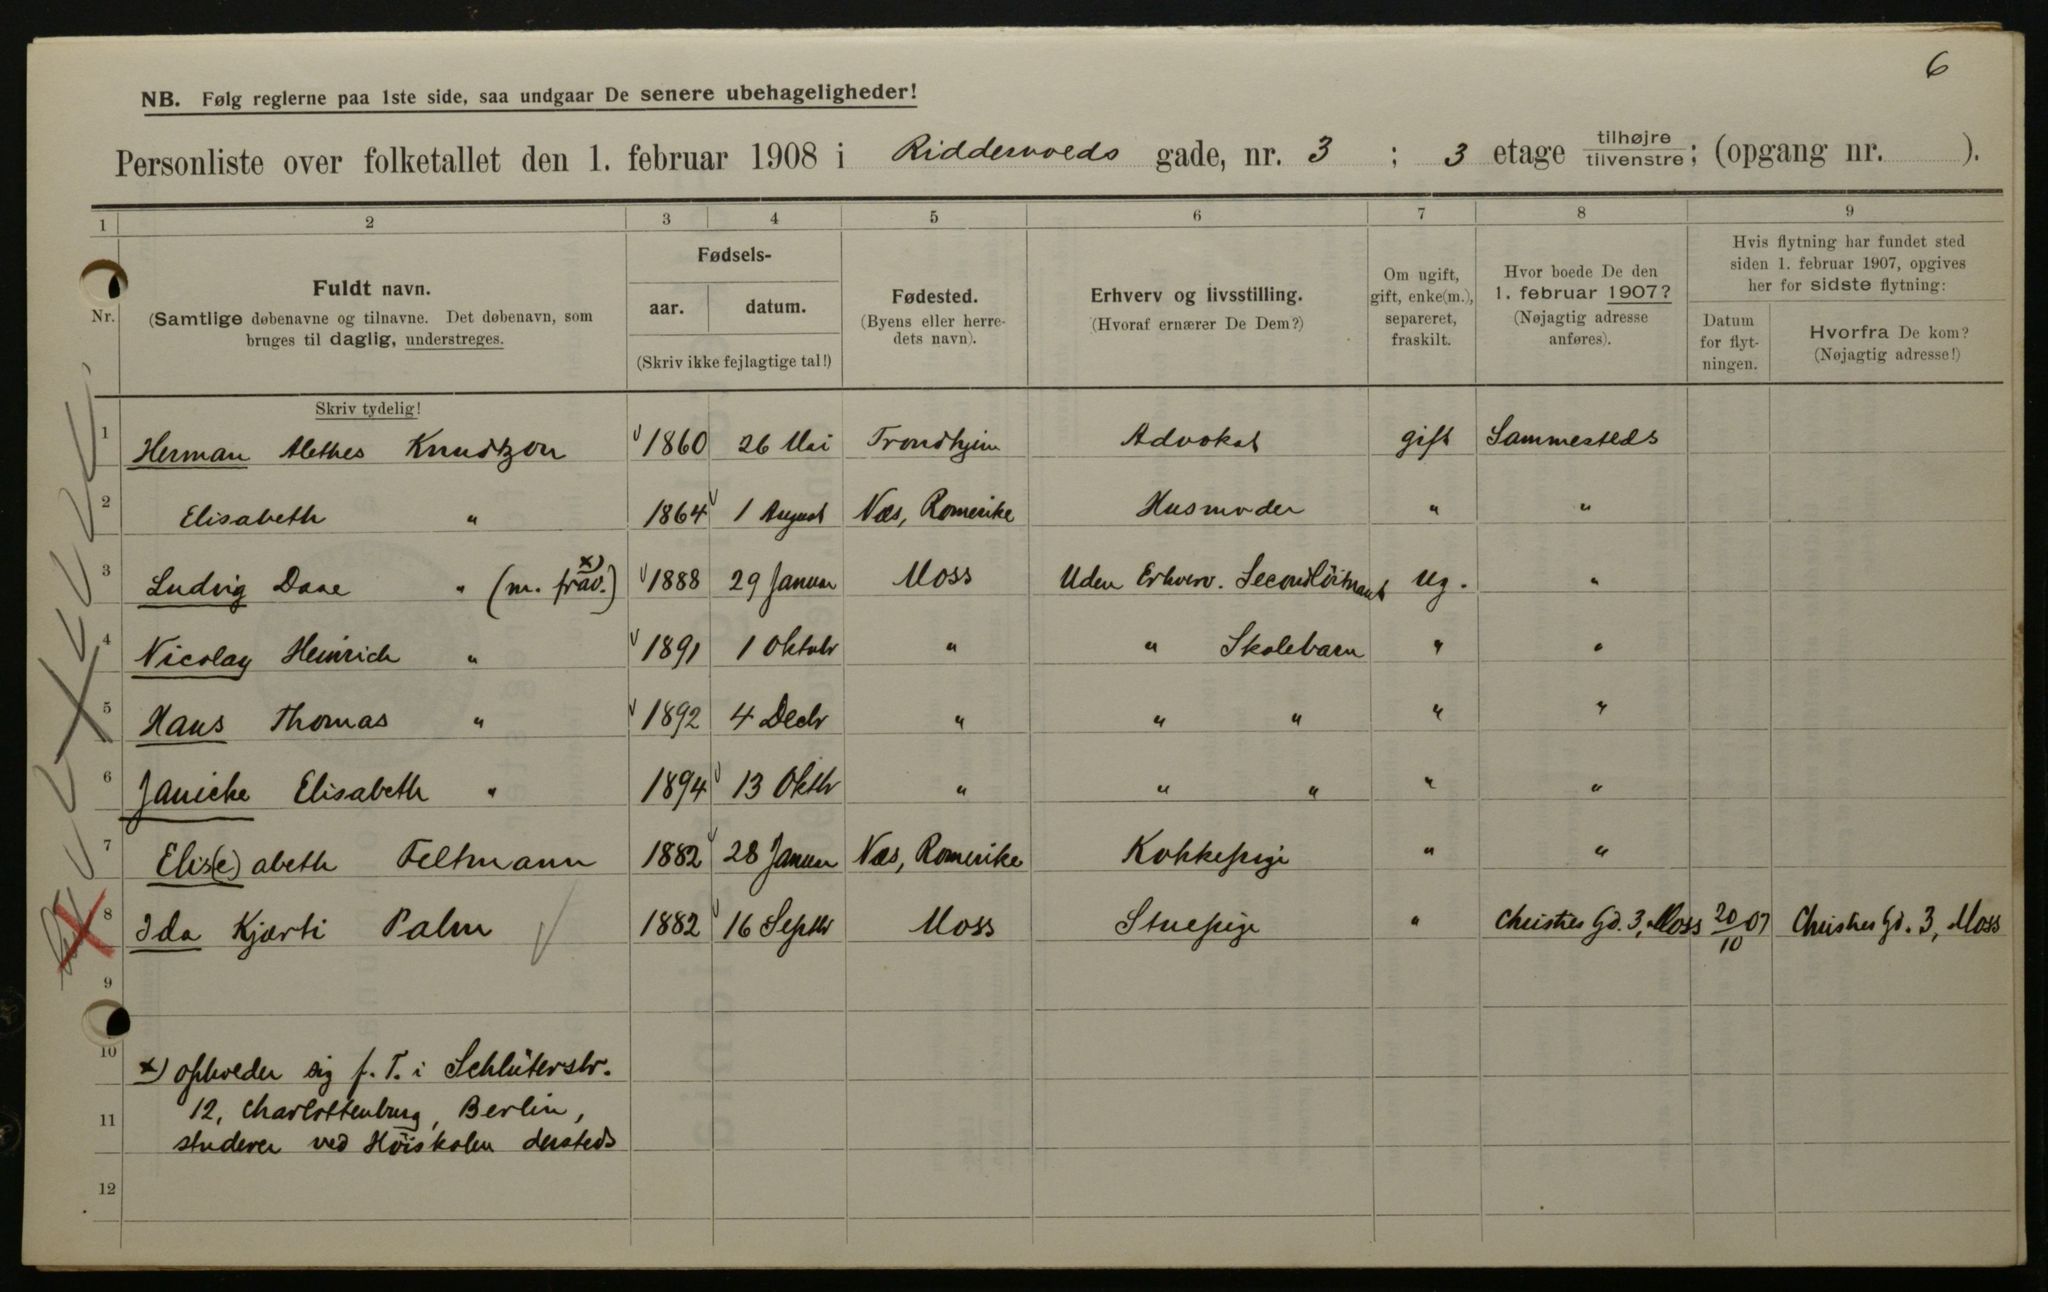 6
NB. Følg reglerne paa 1ste side, saa undgaar De senere ubehageligheder!
Personliste over folketallet den 1. februar 1908 i Riddervolds gade, nr. 3 ; 3 etage tilhøjre tilvenstre; (opgang nr. ).
1 2 3 4 5 6 7 8 9
Nr.
Fuldt navn.
(Samtlige døbenavne og tilnavne. Det døbenavn, som
bruges til daglig, understreges.
Skriv tydelig!
Fødsels-
aar. datum.
(Skriv ikke fejlagtige tal!)
Fødested.
(Byens eller herre-
dets navn).
Erhverv og livsstilling.
(Hvoraf ernærer De Dem?)
Om ugift,
gift, enke(m.),
separeret,
fraskilt.
Hvor boede De den
1. februar 1907?
(Nøjagtig adresse
anføres).
Hvis flytning har fundet sted
siden 1. februar 1907, opgives
her for sidste flytning:
Datum
for flyt-
ningen.
Hvorfra De kom?
(Nøjagtig adresse!)
1 Herman Alethes Knudtzon 1860 26 Mai Trondhjem Advokat gift Sammesteds
2 Elisabeth " 1864 1 August Næs, Romerike Husmoder " "
3 Ludvig Daae " (m. frav.) x) 1888 29 Januar Moss Uden Erhverv. Secondlöitnant Ug. "
4 Nicolay Heinrich " 1891 1 Oktobr " " Skolebarn " "
5 Hans Thomas " 1892 4 Decbr " " " " "
6 Janicke Elisabeth " 1894 13 Oktbr " " " " "
7 Elis(e)abeth Feltmann 1882 28 Januar Næs, Romerike Kokkepige " "
8 Ida Kjærti Palm 1882 16 Septbr Moss Stuepige " Christies Gd. 3, Moss 20/10 07 Christies Gd. 3, Moss
9
10 x) opholder sig p. T. i Schlüterstr.
11 12, Charlottenburg, Berlin,
studerer ved Höiskolen dersteds
12